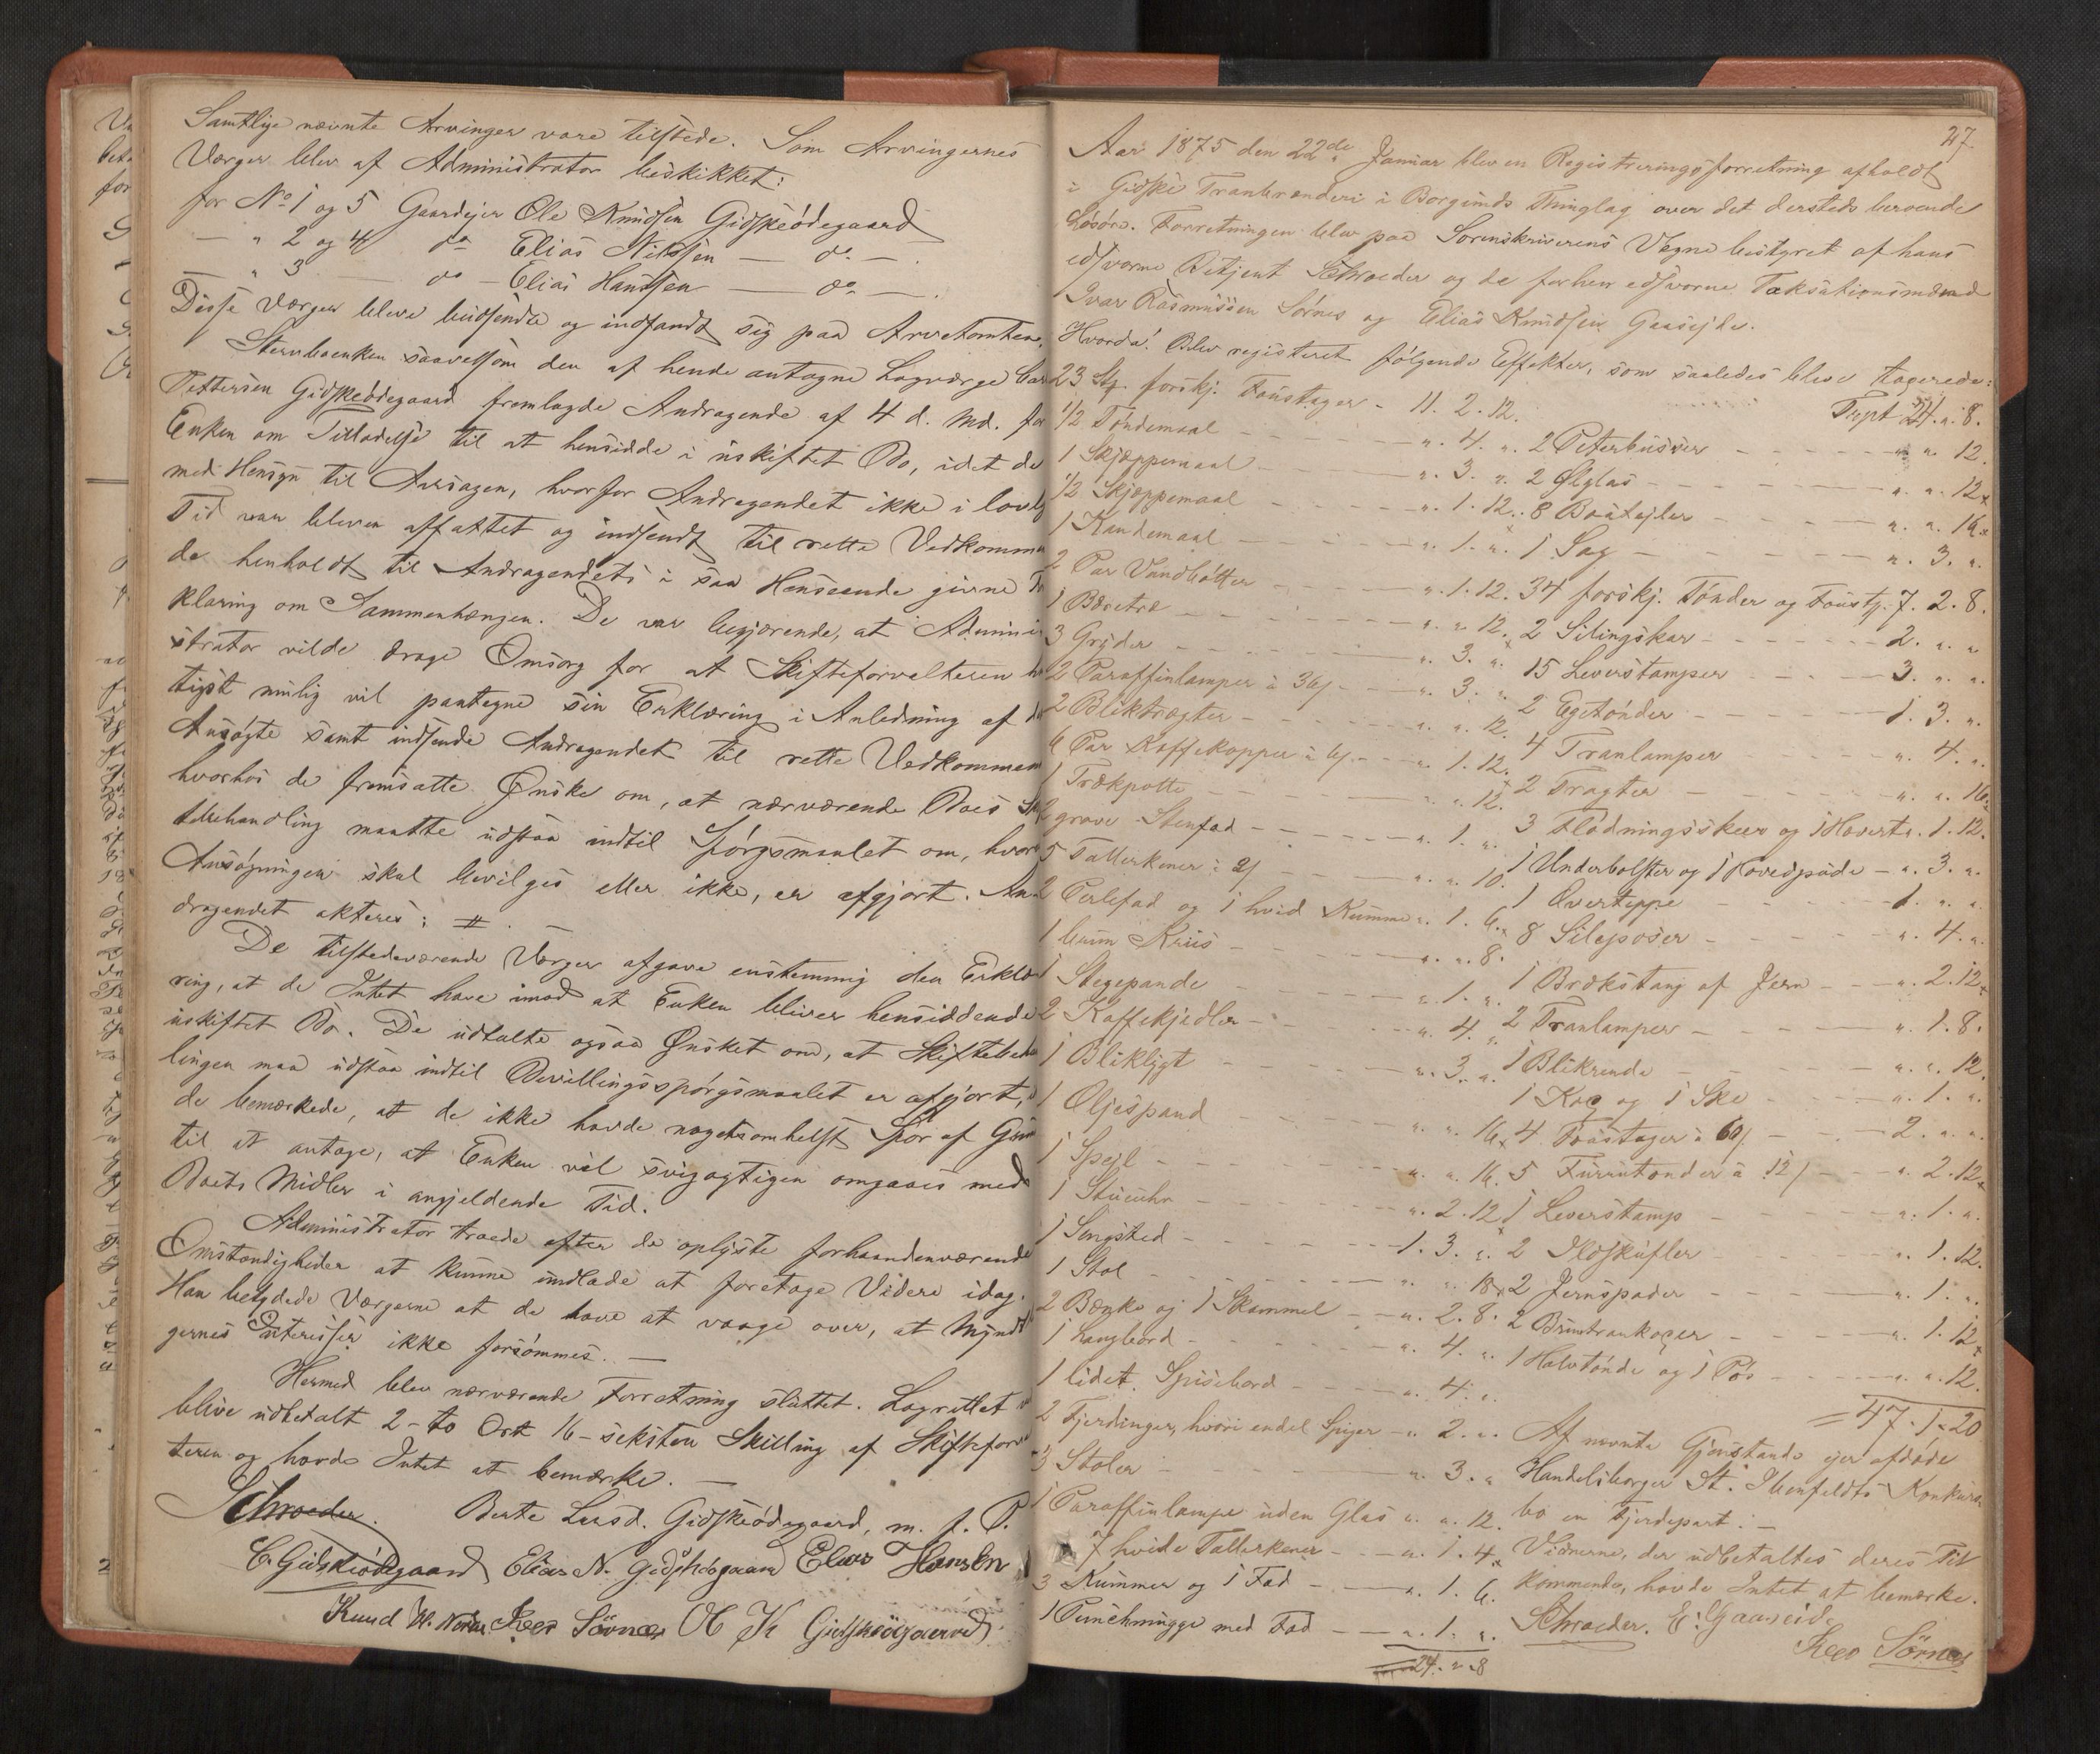 Samtlige nævnte Arvinger vare tilstede. Som Arvingernes
Værger blev af Administrator beskikket:
for No 1 og 5 Gaardejer Ole Knudsen Gidskeödegaard
— " 2 og 4 do Elias Nilssen — do —.
— " 3 — do — Elias Hanssen — do —.
Disse Værger bleve budsendte og indfandt sig paa Arvetomten.
Stervboenken saavelsom den af hende antagne Lagværge
Pettersen Gidskeödegaard fremlagde Andragende af 4 d. Md. f
Enken om Tilladelse til at hensidde i uskiftet Bo, idet de
med Hensyn til Aarsagen, hvorfor Andragendet ikke i lovl
Tid var bleven affattet og indsendt til rette Vedkomm
de henholdt til Andragendets i saa Henseende givne
klaring om Sammenhængen. De var begjærende, at Admini
strator vilde drage Omsorg for at Skifteforvalteren h
tigst mulig vil paategne sin Erklæring i Anledning af d
Ansøgte samt indsende Andragendet til rette Vedkommen
hvorhos de fremsatte Ønske om, at nærværende Boes Sk
tebehandling maatte udstaa indtil Spörgsmaalet om, hvor
Ansögningen skal bevilges eller ikke, er afgjort. An
dragendet akteres: #.
De tilstedeværende Værger afgave enstemmig den Erklæ
ring, at de Intet have imod at Enken bliver hensiddende
uskiftet Bo. De udtalte ogsaa Ønsket om, at Skiftebeh
lingen maa udstaa indtil Bevillingsspörgsmaalet er afgjort,
de bemærkede, at de ikke havde nogetsomhelst Spor af Grun
til at antage, at Enken vil svigagtigen omgaaes med
Boets Midler i angjeldende Tid.
Administrator troede efter de oplyste forhaandenværende
Omstændigheder at kunne undlade at foretage Videre idag.
Han betydede Værgerne at de have at vaage over, at Mynd
gernes Interesser ikke forsömmes. —
Hermed blev nærværende Forretning sluttet. Lagrettet
blive udbetalt 2 - to Ort 16 - seksten Skilling af Skiftefor
teren og havde Intet at bemærke. —
Schroeder. Berte Larsd. Gidskeödegaard, m. f. P.
C. Gidskeödegaard Elias N. Gidskeögaard Elias Hansen
Knud Iver Sörnes O K Gidskeögaard
27.
Aar 1875 den 22de Januar blev en Registreringsforretning afholdt
i Gidske Tranbrænderi i Borgunds Thinglag over det dersteds beroende
Lösöre. Forretningen blev paa Sorenskriverens Vegne bestyret af hans
edsvorne Betjent Schroeder og de forhen edsvorne Taksationsmænd
Ivar Rasmussen Sörnes og Elias Knudsen Gaaseide.
Hvorda! Blev registreret fölgende Effekter, som saaledes bleve taxerede:
23 Stk. forskj. Foustager - 11. 2. 12.
1/2 Töndemaal — ". 4. ".
1 Skjæppemaal — ". 3. ".
1/2 Skjæppemaal — ". 1. 12.
1 Kandemaal — ". 1. ".
2 Par Vandbötter — ". 1. 12.
1 Bæretræ — ". ". 12.
3 Gryder — ". 3. ".
2 Paraffinlamper à 36 — ". 3. ".
2 Bliktragter — ". ". 12.
6 Par Kaffekopper à 6 — ". 1. 12.
1 Trækpotte — ". ". 12.
2 grove Stenfad — ". 1. ".
5 Tallerkener à 2 — ". ". 10.
2 Perlefad og 1 hvid Kumme ". 1. 6.
1 Kruis — ". ". 8.
1 Stegepande — ". 1. ".
2 Kaffekjedler — ". 4. ".
1 Bliklygt — ". 3. ".
1 Oljespand — ". ". 16.
1 Spejl — ". ". 16.
1 Stueuhr — ". 2. 12
1 Sengsted — 1. 3. ".
1 Stol — ". ". 18
2 Bænke og 1 Skammel — ". 2. 8.
1 Langbord — ". 4. ".
1 lidet Spisebord — ". 4. ".
2 Fjerdinger, hvori endel Spiger — ". 2. ".
3 Stoler — ". 3. ".
1 Paraffinlampe uden Glas ". ". 12.
7 hvide Tallerkener — ". 1. 4.
3 Kummer og 1 Fad — ". 1. 6.
1 Punchmugge med Fad — ". 1. ".
24. " 8
Trspt 24. ". 8.
2 Peterbusser — ". ". 12.
2 Ølglas — ". ". 12
8 Boutejler — ". ". 16
1 Sag — ". 3. ".
34 forskj. Tönder og Foustg. 7. 2. 8.
2 Silingskar — 2. ". "
15 Leverstamper — 3. ". ".
2 Egetönder — 1. 3. ".
4 Tranlamper — ". 4. ".
2 Tragter — ". ". 16
3 Flödningsskeer og 1 Hævert ". 1. 12.
1 Underbolster og 1 Hovedpude — ". 3. ".
1 Overteppe — 1. ". ".
8 Sileposer — ". 4. ".
1 Brækstang af Jern — ". 2. 12
2 Tranlamper — ". 1. 8.
1 Blikrende — ". ". 12.
1 Krog og 1 Ske — ". 1. ".
4 Foustager à 60 — 2. ". ".
5 Furrutønder à 12 — ". 2. 12
1 Leverstamp — ". 1. ".
2 Ildskufler — ". 1. 12.
2 Jernspader — ". 1. ".
2 Bruntrankoger — ". 1. 12
1 Halvtönde og 1 Pös — ". ". 12.
= 47. 1. 20
Af nævnte Gjenstande ejer afdöde
Handelsborger St. Ibenfeldts Konkurs
bo en Fjerdepart. —
Vidnerne, der udbetaltes deres Til
kommende, havde Intet at bemærke.
Schroeder. E. Gaaseide
Iver Sörnes